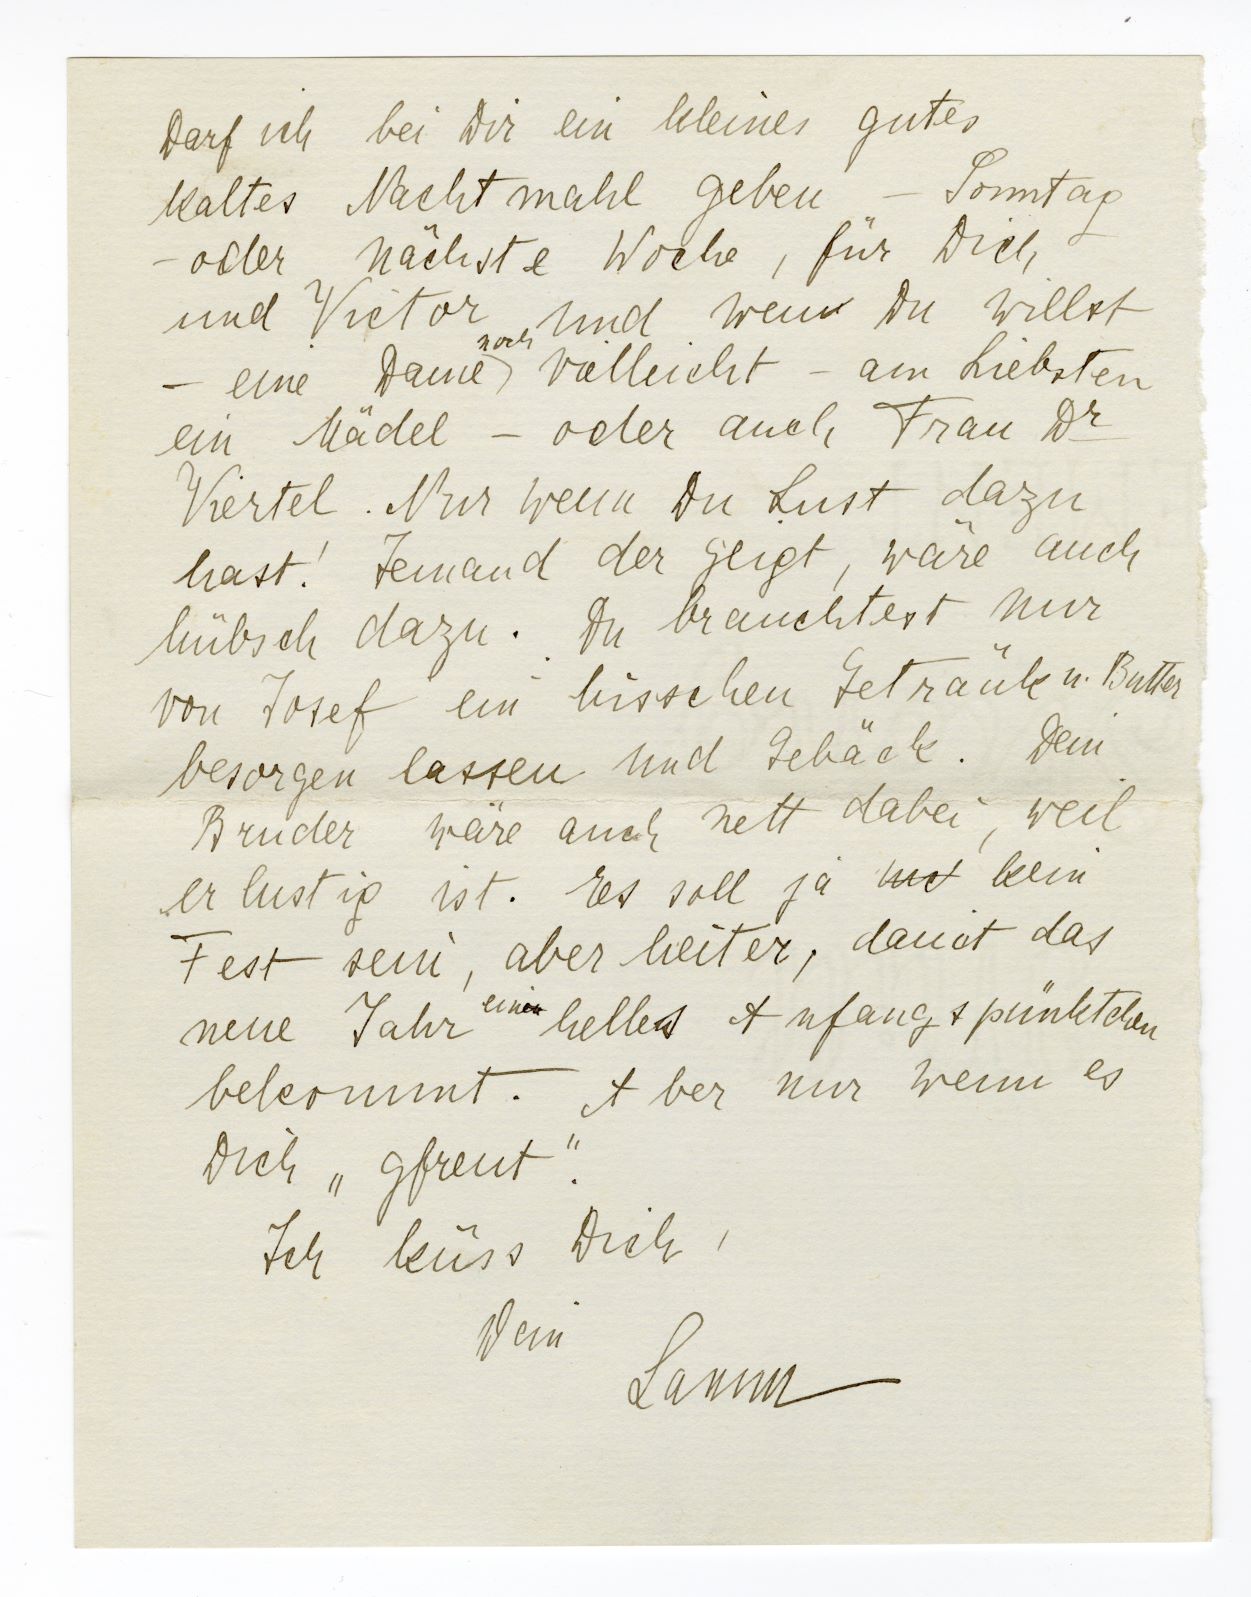 Darf ich bei Dir ein kleines gutes
kaltes Nachtmahl geben – Sonntag
– oder nächste Woche, für Dich
und Victor und wenn Du willst
– eine Dame noch vielleicht – am Liebsten
ein Mädel – oder auch Frau Dr
Viertel. Nur wenn Du Lust dazu
hast! Jemand der geigt, wäre auch
hübsch dazu. Du brauchtest nur
von Josef ein bisschen Getränk u. Butter
besorgen lassen und Gebäck. Dein
Bruder wäre auch nett dabei, weil
er lustig ist. Es soll ja kein
Fest sein, aber heiter, damit das
neue Jahr ein helles Anfangspünktchen
bekommt. Aber nur wenn es
Dich „gfreut".
Ich küss Dich,
Dein
Lamm